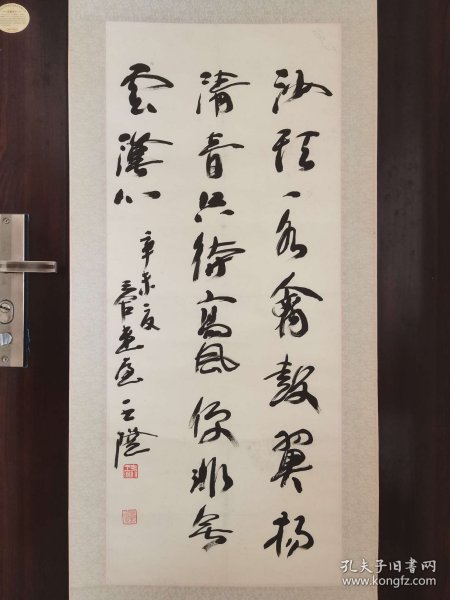 沙頭一水禽鼓翼揚
清音只待高風便非無
雲漢心
辛未夏
王隆
孔夫子旧书网
www.kongfz.com